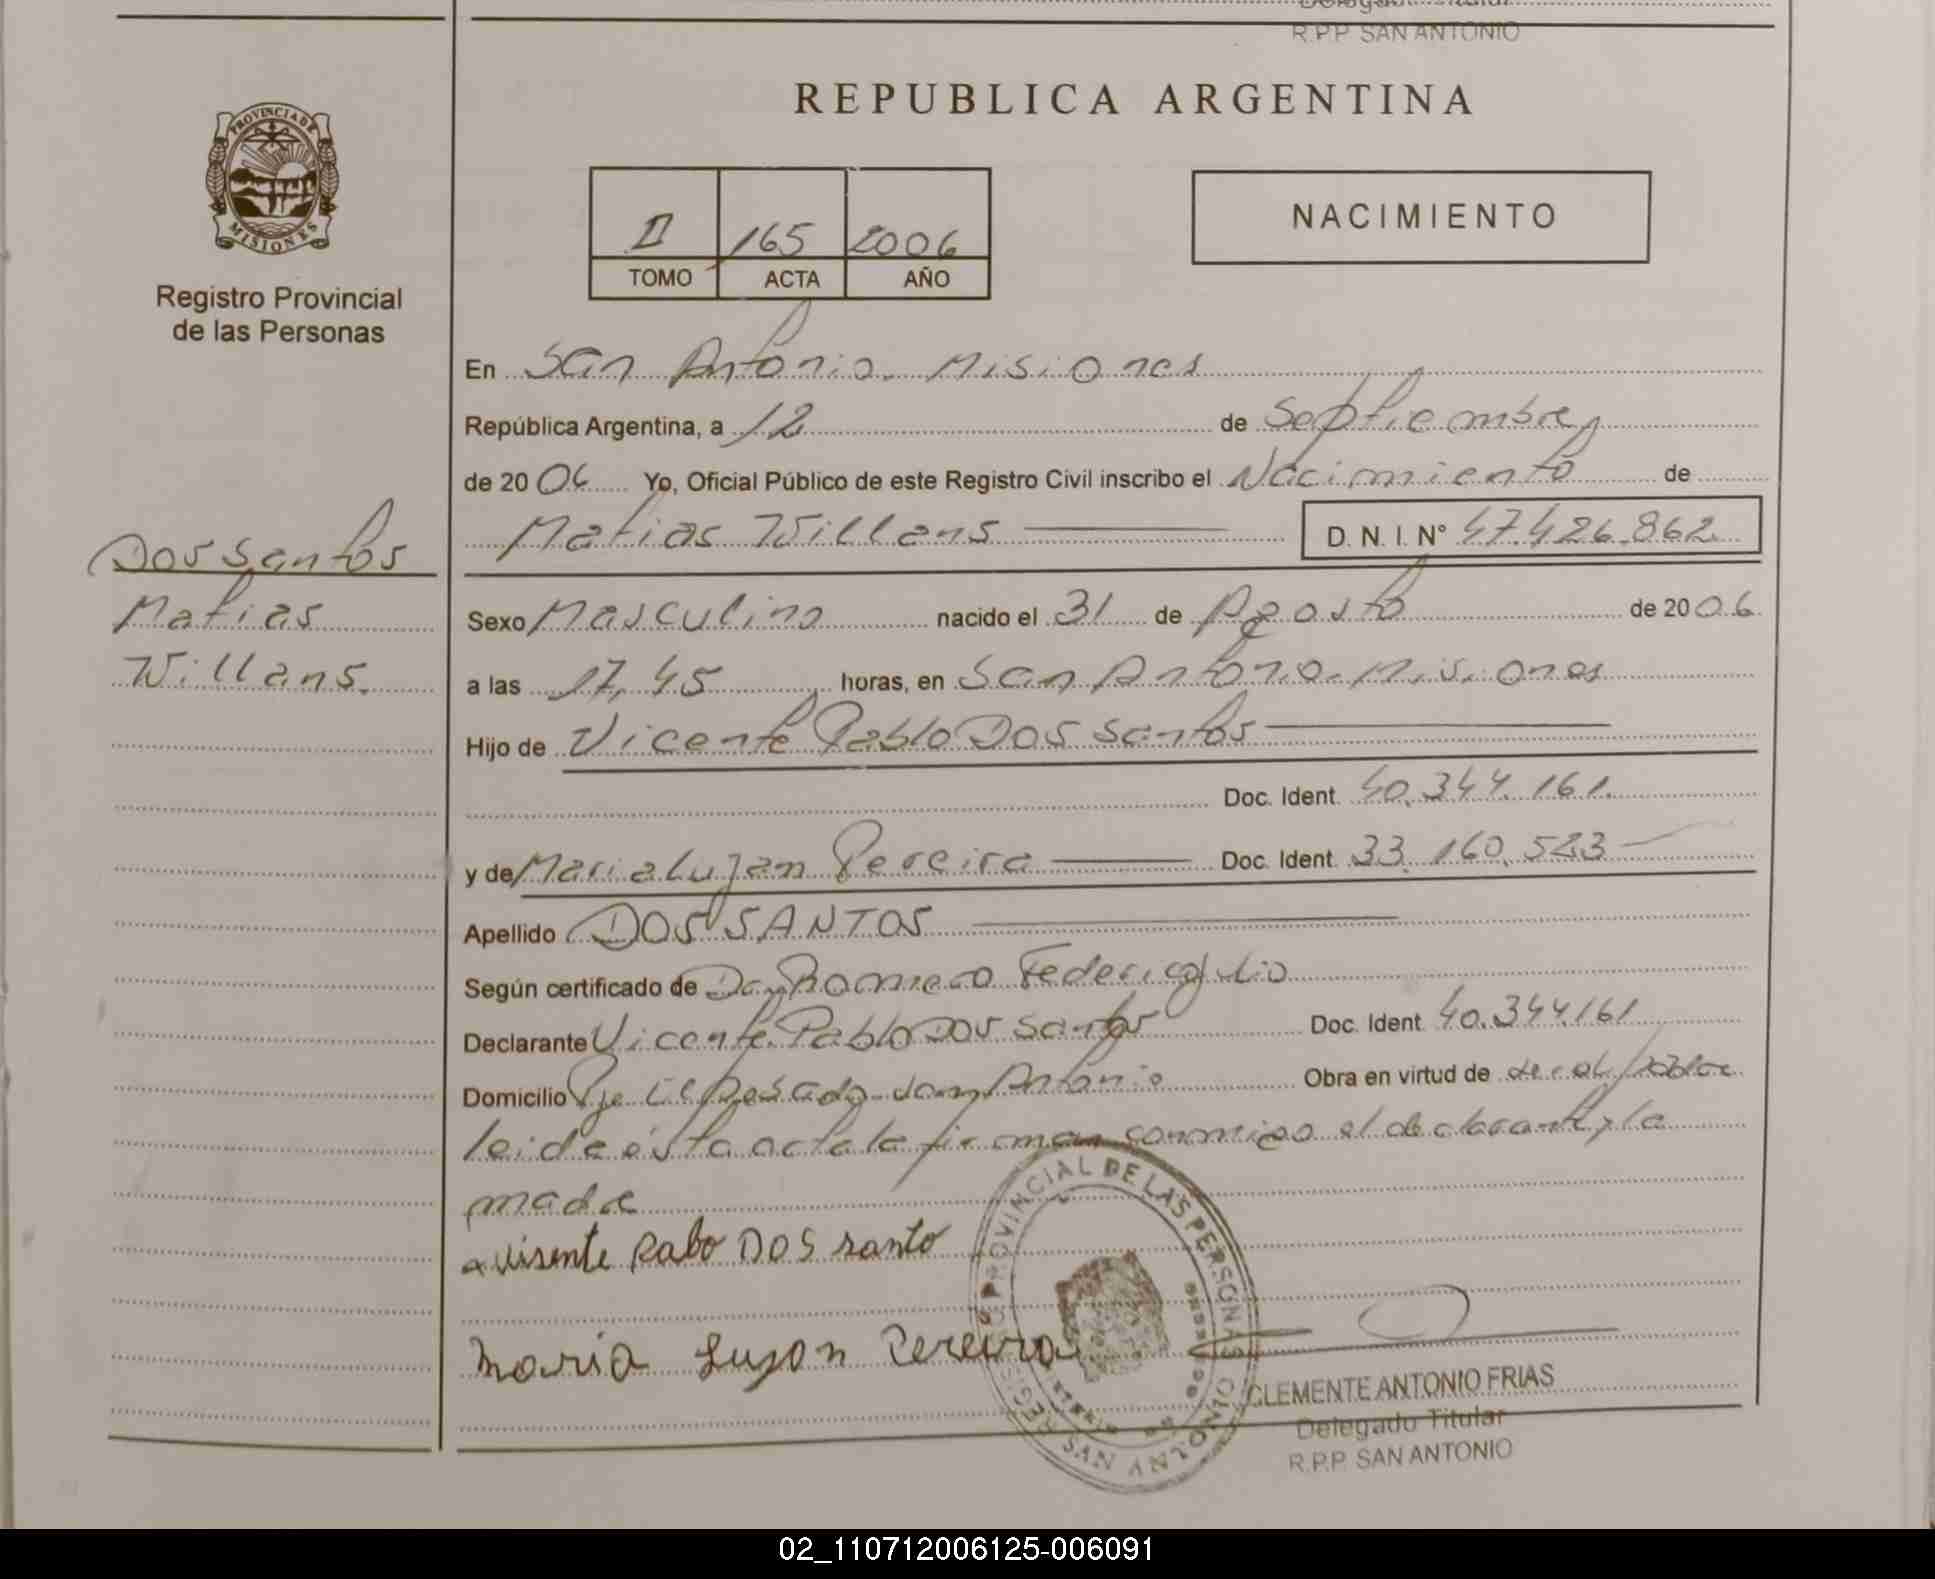 R.P.P. SAN ANTONIO
REPUBLICA ARGENTINA
PROVINCIA DE
MISIONES
Registro Provincial
de las Personas
II 165 2006
TOMO ACTA AÑO
NACIMIENTO
En San Antonio. Misiones
República Argentina, a 12 de Septiembre,
de 2006 Yo, Oficial Público de este Registro Civil inscribo el Nacimiento de
Matias Willans D. N. I. N° 47.426.862
Dos Santos
Matias
Willans.
Sexo Masculino nacido el 31 de Agosto de 2006
a las 17,45 horas, en San Antonio. Misiones
Hijo de Vicente Pablo Dos Santos
Doc. Ident. 40.344.161.
y de Maria Lujan Pereira Doc. Ident. 33.160.523
Apellido DOS SANTOS
Según certificado de Romero Federico Julio
Declarante Vicente Pablo Dos Santos Doc. Ident. 40.344.161
Domicilio Pje El Dorado San Antonio Obra en virtud de
leida ésta acta la firman conmigo el declarante y la
madre
visente Pabo DOS santo
Maria Lujan Pereira
REGISTRO PROVINCIAL DE LAS PERSONAS
SAN ANTONIO
CLEMENTE ANTONIO FRIAS
Delegado Titular
R.P.P. SAN ANTONIO
02_110712006125-006091